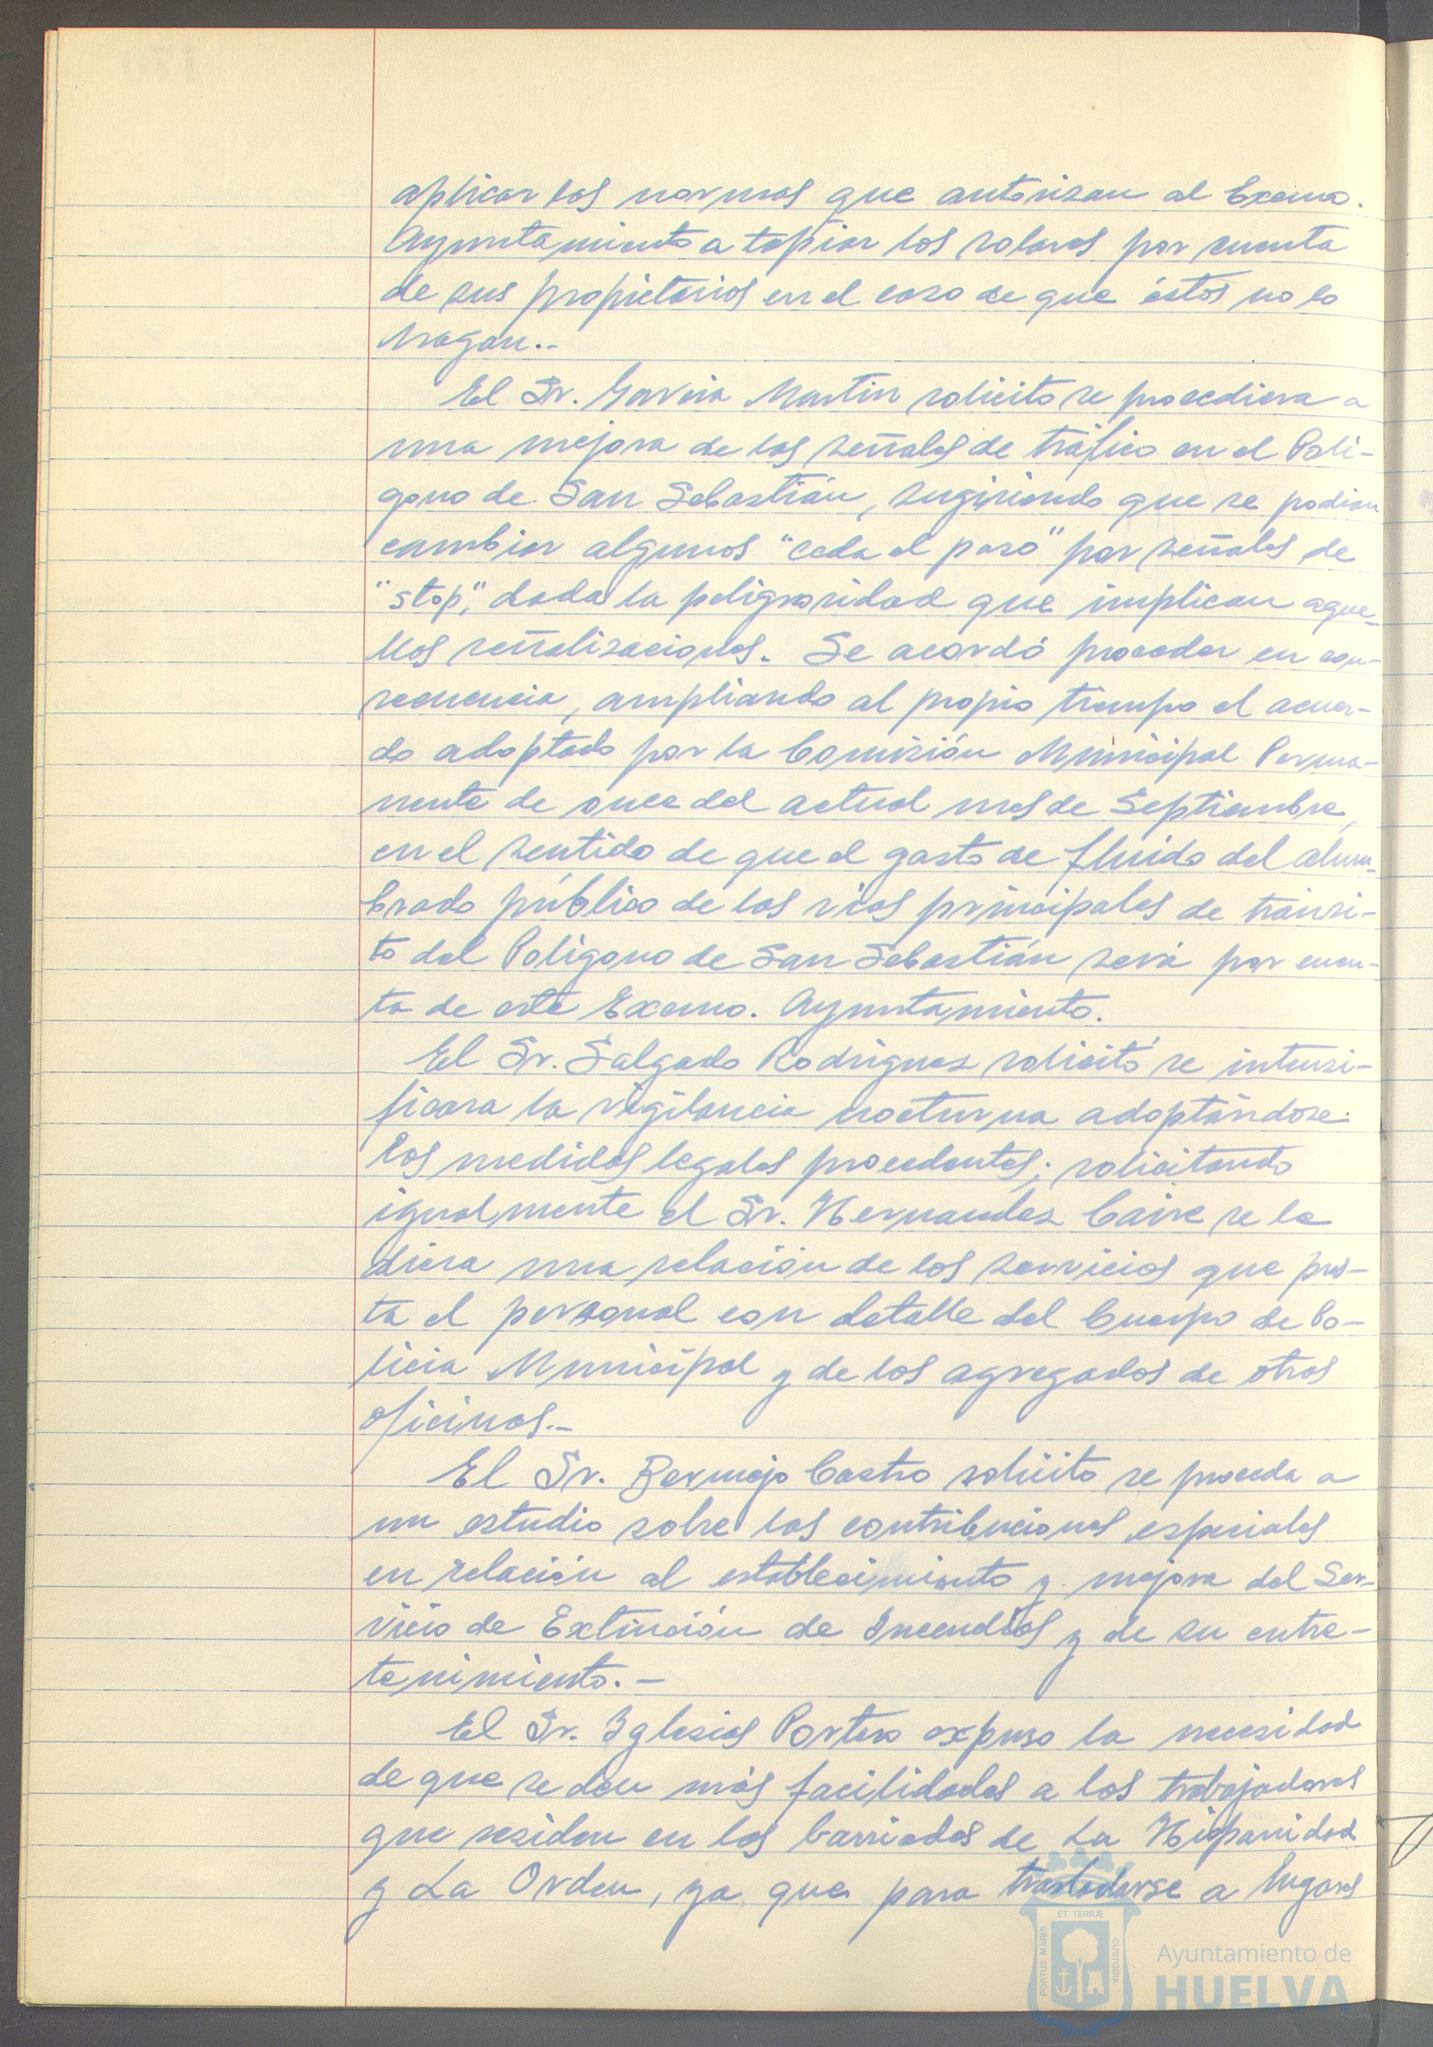 aplicar las normas que autorizan al Excmo.
Ayuntamiento a tapiar los solares por cuenta
de sus propietarios en el caso de que éstos no lo
hagan.-
El Sr. García Martín solicito se procediera a
una mejora de las señales de tráfico en el Polí-
gono de San Sebastián, sugiriendo que se podían
cambiar algunos "ceda el paso" por señales de
"stop", dada la peligrosidad que implican aque-
llas señalizaciones. Se acordó proceder en con-
secuencia, ampliando al propio tiempo el acuer-
do adoptado por la Comisión Municipal Perma-
nente de once del actual mes de Septiembre,
en el sentido de que el gasto de fluido del alum-
brado público de las vías principales de tránsi-
to del Polígono de San Sebastián será por cuen-
ta de este Excmo. Ayuntamiento.
El Sr. Salgado Rodríguez solicitó se intensi-
ficara la vigilancia nocturna adoptándose
las medidas legales procedentes; solicitando
igualmente el Sr. Hernández Caire se le
diera una relación de los servicios que pres-
ta el personal con detalle del Cuerpo de Po-
licia Municipal y de los agregados de otras
oficinas.-
El Sr. Bermejo Castro solicito se proceda a
un estudio sobre las contribuciones especiales
en relación al establecimiento y mejora del Ser-
vicio de Extinción de Incendios y de su entre-
tenimiento.-
El Sr. Iglesias Portero expuso la necesidad
de que se den más facilidades a los trabajadores
que residen en las barriadas de La Hispanidad
y La Orden, ya que para trasladarse a lugares
PORTUS MARIS
ET TERRÆ
CUSTODIA
Ayuntamiento de
HUELVA